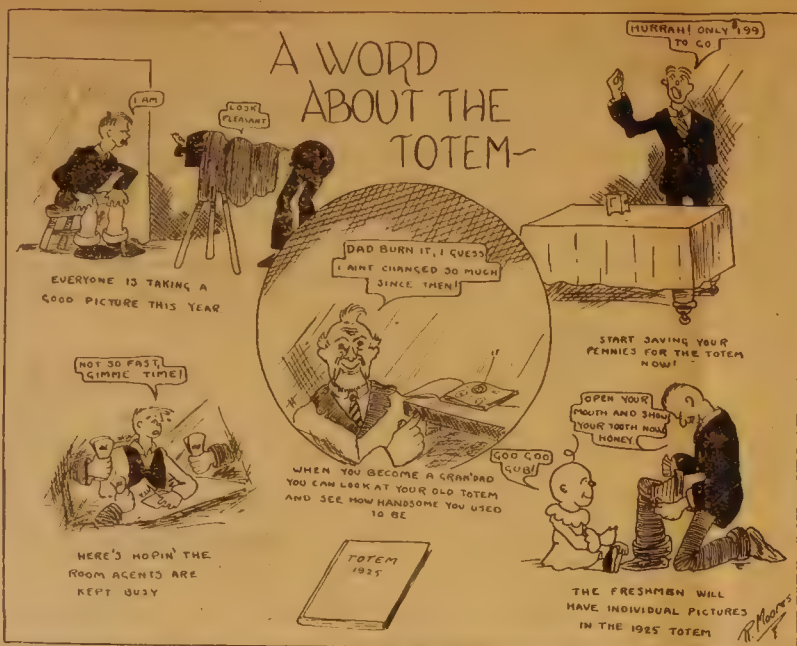 A WORD
ABOUT THE
TOTEM~
I AM
LOOK
PLEASANT
EVERYONE IS TAKING A
GOOD PICTURE THIS YEAR
HURRAH! ONLY $1.99
TO GO
START SAVING YOUR
PENNIES FOR THE TOTEM
NOW!
DAD BURN IT, I GUESS
I AINT CHANGED SO MUCH
SINCE THEN!
WHEN YOU BECOME A GRAN'DAD
YOU CAN LOOK AT YOUR OLD TOTEM
AND SEE HOW HANDSOME YOU USED
TO BE
NOT SO FAST,
GIMME TIME!
HERE'S HOPIN' THE
ROOM AGENTS ARE
KEPT BUSY
TOTEM
1925
GOO GOO
GUB!
OPEN YOUR
MOUTH AND SHOW
YOUR TOOTH NOW
HONEY.
THE FRESHMEN WILL
HAVE INDIVIDUAL PICTURES
IN THE 1925 TOTEM
R. Moores